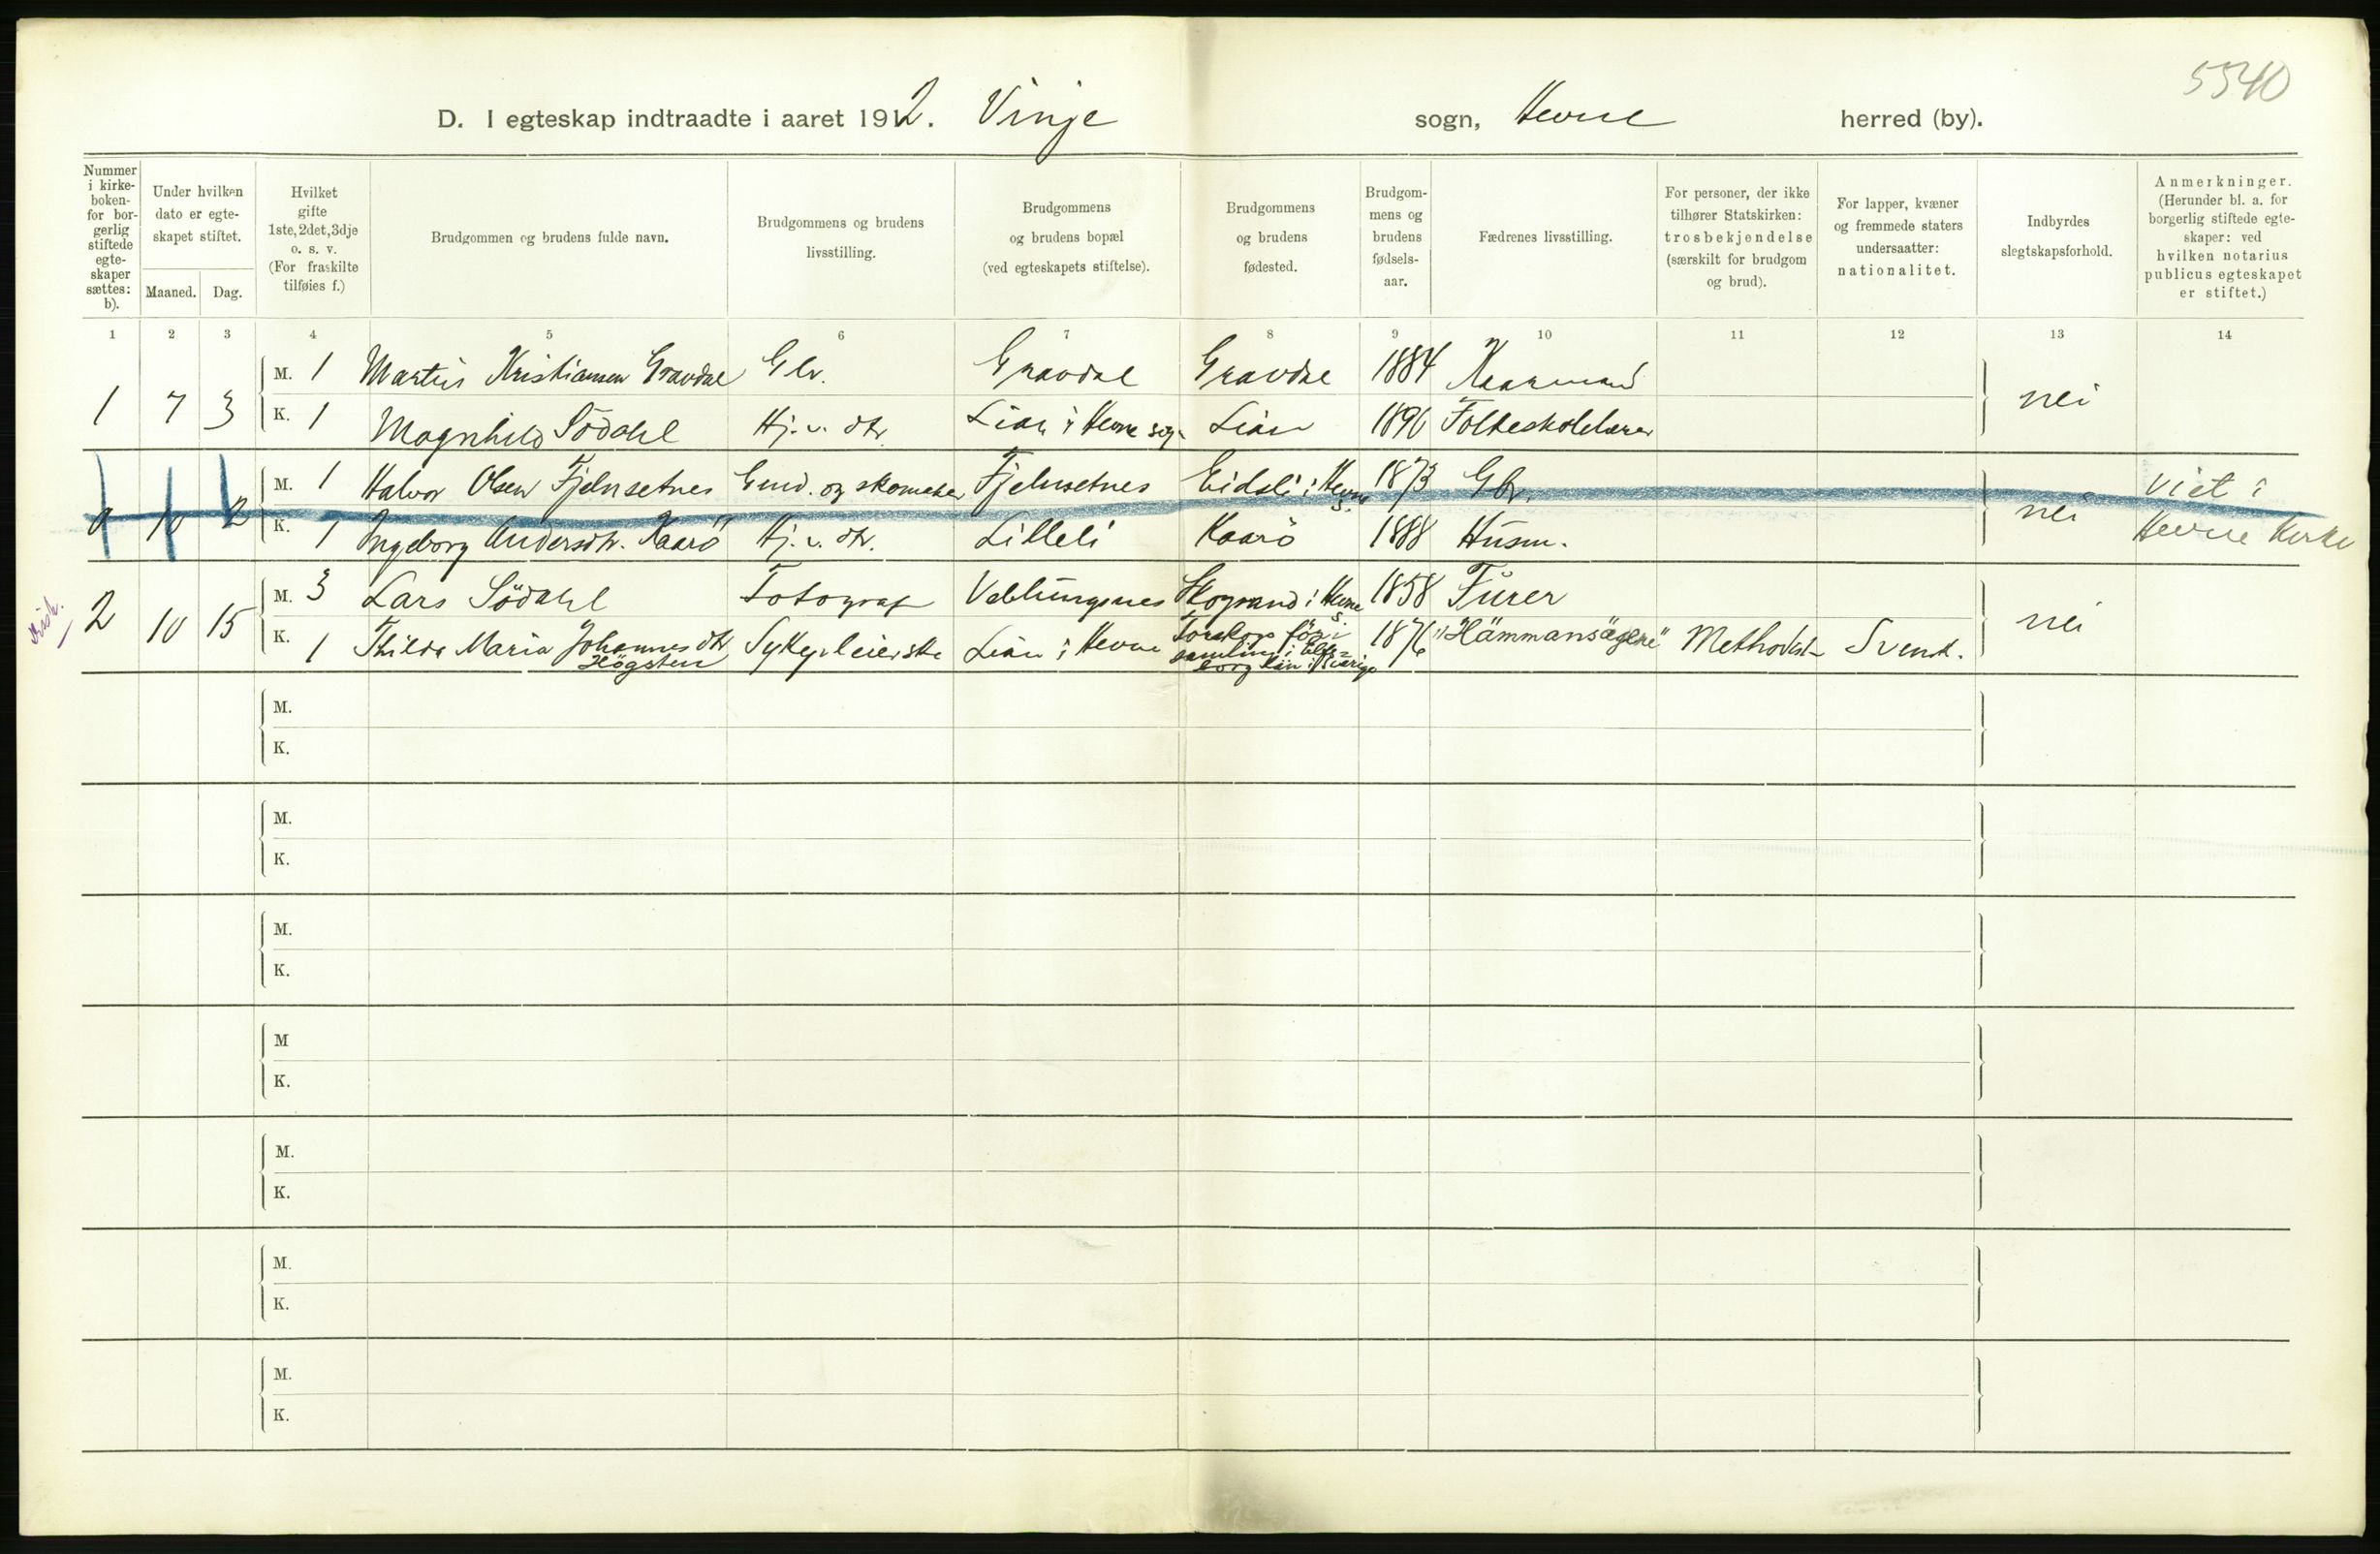 5540
D. I egteskap indtraadte i aaret 1912. Vinje sogn, Hevne herred (by).
Nummer i kirke-boken- for bor-gerlig stiftede egte-skaper sættes: b).
Under hvilken dato er egte-skapet stiftet.
Maaned. Dag.
Hvilket gifte 1ste, 2det, 3dje o. s. v. (For fraskilte tilføies f.)
Brudgommen og brudens fulde navn.
Brudgommens og brudens livsstilling.
Brudgommens og brudens bopæl (ved egteskapets stiftelse).
Brudgommens og brudens fødested.
Brudgom-mens og brudens fødsels-aar.
Fædrenes livsstilling.
For personer, der ikke tilhører Statskirken: trosbekjendelse (særskilt for brudgom og brud).
For lapper, kvæner og fremmede staters undersaatter: nationalitet.
Indbyrdes slegtskapsforhold.
Anmerkninger. (Herunder bl. a. for borgerlig stiftede egte-skaper: ved hvilken notarius publicus egteskapet er stiftet.)
1 2 3 4 5 6 7 8 9 10 11 12 13 14
1 7 3 M. 1 Martin Kristiansen Gravdal Gbr. Gravdal Gravdal 1884 Kaarmand nei
K. 1 Magnhild Södahl Hj. v. dtr. Lian i Hevne sogn Lian 1890 Folkeskolelærer
10 2 M. 1 Halvor Olsen Fjelnsetnes Gmd. og skomaker Fjelnsetnes Eidsli i Hevne s. 1873 Gbr. nei Viet i
K. 1 Ingeborg Andersdtr. Kaarö Hj. v. dtr. Lilleli Kaarö 1888 Husm. Hevne Kirke
2 10 15 M. 3 Lars Södahl Fotograf Veblungsnes Skogrand i Hevne s. 1858 Furer nei
K. 1 Thilda Maria Johannesdtr Högsten Sykepleierske Lian i Hevne Torskogs församling i Elfsborg län i Sverige 1876 "Hämmansägere" Methodist Svensk.
M.
K.
M.
K.
M.
K.
M
K.
M.
K.
M.
K.
M.
K.